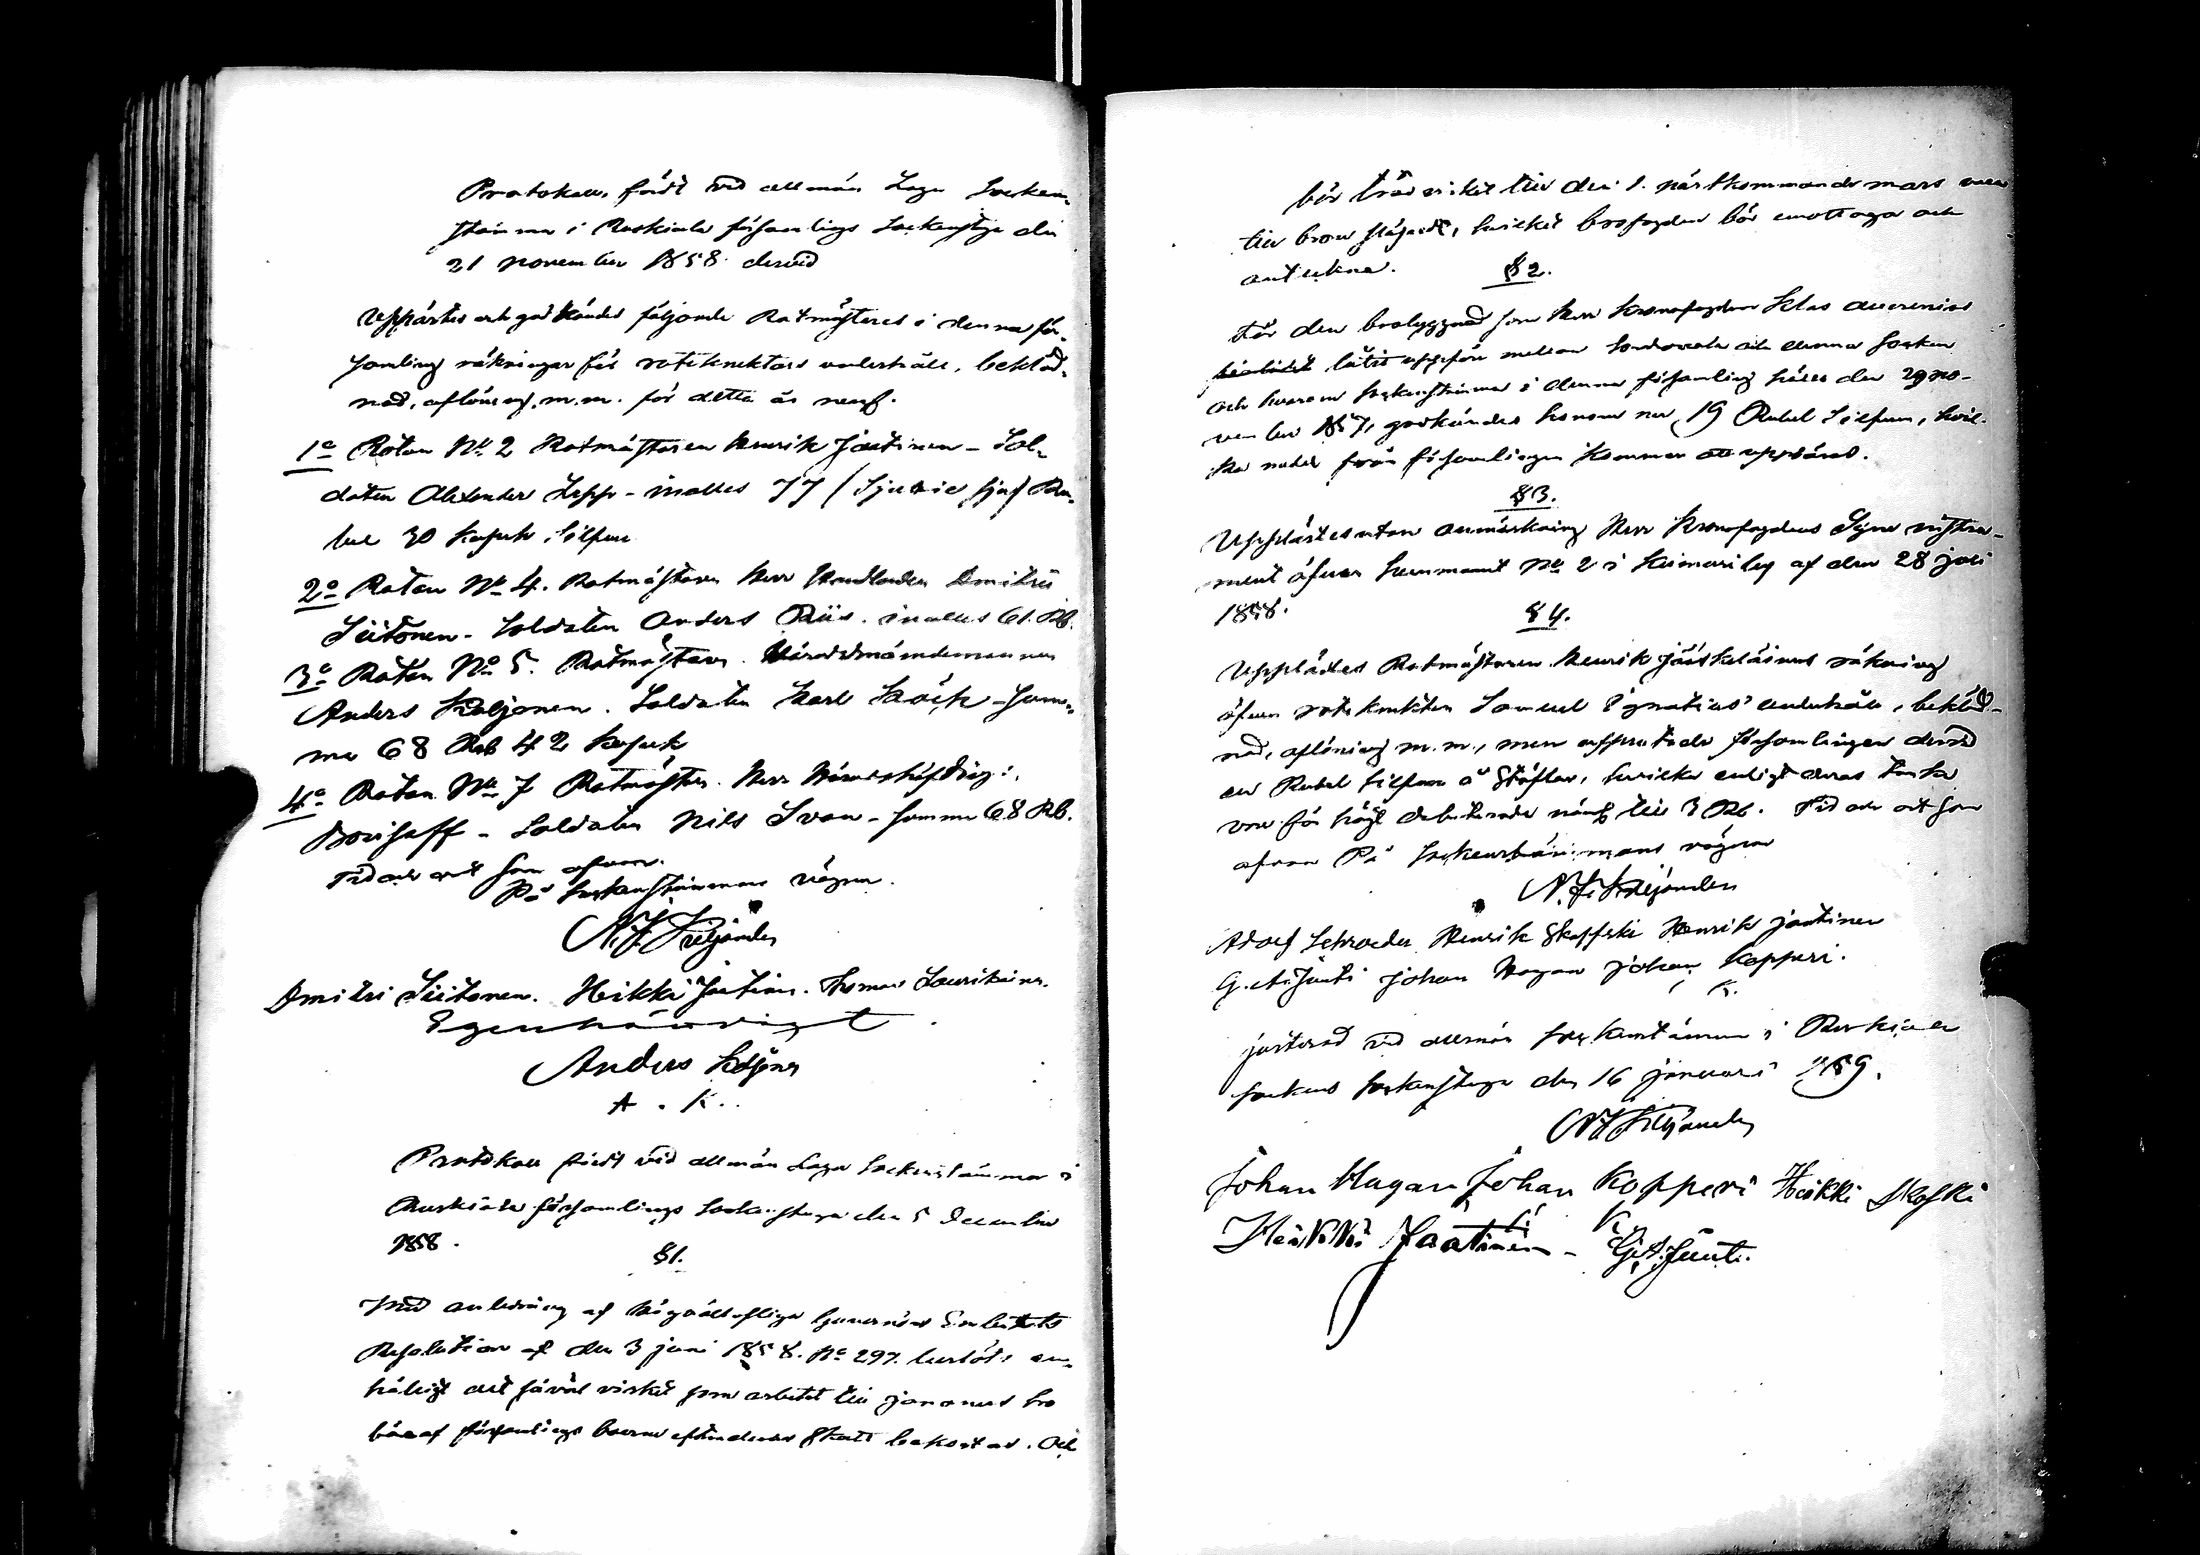 Protokoll, fördt vid allmän Laga Socken-
stämma i Ruskiala församlings Sockenstuga den
21 november 1858 dervid
Upplästes och godkändes följande Rotmästares i denna för-
samling räkningar för roteknektars underhåll, bekläd-
nad, aflöning, m.m. för detta år nemf.
1o Rotan No 2 Rotmästaren Henrik Jaatinen - Sol-
daten Alexander Zepp - inalles 77 (Sjutio sju) Ru-
bel 30 kopek silfver
2o Rotan No 4. Rotmästaren Herr Handlanden Dmitrii
Siitonen - Soldaten Anders Riis. inalles 61. Rb.
3o Rotan No 5. Rotmästaren Häradsnämndemannen
Anders Koljonen. Soldaten Karl Kock - Sum-
ma 68 Rub 42 kopek
4o Rotan No 7 Rotmästar. Herr Häradshöfding:
Borisoff - Soldaten Nils Svan - Summa 68 Rb.
Tid och ort som ofvan.
På Sockenstämmans vägnar.
N. F. Siljander
Dmitri Siitonen. Heikki Jaatinen. Thomas Laurikainen.
Egenhändigt
Anders Koljonen
A. K.
Protokoll fördt vid allmän Laga Sockenstämma i
Ruskiala församlings Sockenstuga den 5 December
1858.
§ 1.
Med anledning af Högvällofliga Guvernörs Embetets
Resolution af den 3 juni 1858. No 297. beslöts en-
hälligt att såväl virket som arbetet till bro
bör af församlings boerne efter deras skatt bekostas. Och
bör trävirket till den 1. nästkommande mars vara
till bron släpadt, hvilket brofogden bör emottaga och
anteckna.
§ 2.
För den brobyggnad som Herr Kronofogden Klas
låtit uppföra mellan Sordavala och denna socken
och hvarom sockenstämma i denna församling hölls den 29 no-
vember 1857, godkändes honom nu 19 Rubel Silfver, hvil-
ka medel från församlingen kommer att uppbäras.
§ 3.
Upplästes utan anmärkning Herr Kronofogdens Syne instru-
ment öfver hemmanet No 2 i af den 28 juli
1858.
§ 4.
Upplästes Rotmästaren Henrik Jääskeläinens räkning
öfver roteknekten Samuel Ignatius' underhåll, bekläd-
nad, aflöning m.m., men församlingen dervid
en Rubel silfver å Stöflar, hvilka enligt deras tanka
voro för högt debiterade nämf till 3 Rb. Tid och ort som
ofvan På Sockenstämmans vägnar
N. F. Siljander
Adolf Schroeder Henrik Skopski Henrik Jaatinen
G. A. Juuti Johan Magan Johan Kopperi.
K.
Justerad vid allmän sockenstämma i Ruskiala
sockens Sockenstuga den 16 januari 1859.
N F Siljander
Johan Magan Johan Kopperi Heikki Skopski
K
Heikki Jaatinen - G. A. Juuti.